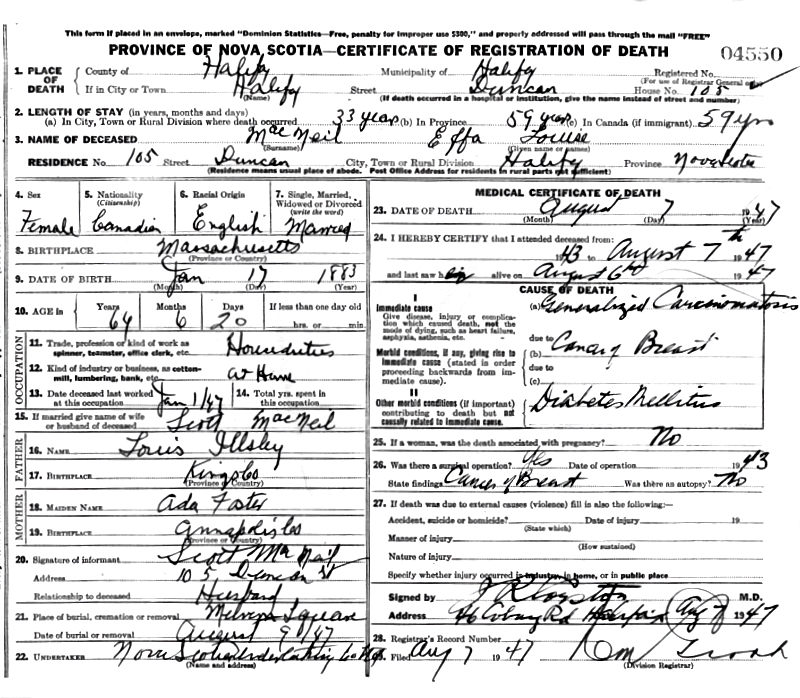 This form if placed in an envelope, marked "Dominion Statistics—Free, penalty for improper use $300," and properly addressed will pass through the mail "FREE"
PROVINCE OF NOVA SCOTIA—CERTIFICATE OF REGISTRATION OF DEATH
04550
1. PLACE OF DEATH County of Halifax Municipality of Halifax Registered No.
(For use of Registrar General only)
If in City or Town Halifax Street Duncan House No. 105
(Name) (If death occurred in a hospital or institution, give the name instead of street and number)
2. LENGTH OF STAY (in years, months and days)
(a) In City, Town or Rural Division where death occurred 33 years (b) In Province 59 years (c) In Canada (if immigrant) 59 yrs
3. NAME OF DECEASED MacNeil Effa Louise
(Surname) (Given name or names)
RESIDENCE No. 105 Street Duncan City, Town or Rural Division Halifax Province Nova Scotia
(Residence means usual place of abode. Post Office Address for residents in rural parts not sufficient)
4. Sex Female
5. Nationality (Citizenship) Canadian
6. Racial Origin English
7. Single, Married, Widowed or Divorced (write the word) Married
8. BIRTHPLACE Massachusetts
(Province or Country)
9. DATE OF BIRTH Jan 17 1883
(Month) (Day) (Year)
10. AGE in Years Months Days If less than one day old
64 6 20 hrs. or min.
OCCUPATION
11. Trade, profession or kind of work as spinner, teamster, office clerk, etc. Houseduties
12. Kind of industry or business, as cotton-mill, lumbering, bank, etc. at Home
13. Date deceased last worked at this occupation Jan 1/47
14. Total yrs. spent in this occupation
15. If married give name of wife or husband of deceased Scott MacNeil
FATHER
16. NAME Louis Illsley
17. BIRTHPLACE Kings Co
(Province or Country)
MOTHER
18. MAIDEN NAME Ada Foster
19. BIRTHPLACE Annapolis Co
(Province or Country)
20. Signature of informant Scott MacNeil
Address 105 Duncan St
Relationship to deceased Husband
21. Place of burial, cremation or removal Melvern Square
Date of burial or removal August 9/47
22. UNDERTAKER Nova Scotia Undertaking Co
(Name and address)
MEDICAL CERTIFICATE OF DEATH
23. DATE OF DEATH August 7 1947
(Month) (Day)
24. I HEREBY CERTIFY that I attended deceased from:
1943 to August 7th 1947
and last saw her alive on August 6th 1947
CAUSE OF DEATH
I
Immediate cause
Give disease, injury or complication which caused death, not the mode of dying, such as heart failure, asphyxia, asthenia, etc.
(a) Generalized Carcinomatosis
due to
Morbid conditions, if any, giving rise to immediate cause (stated in order proceeding backwards from immediate cause).
(b) Cancer of Breast
due to
(c)
II
Other morbid conditions (if important) contributing to death but not causally related to immediate cause.
Diabetes Mellitus
25. If a woman, was the death associated with pregnancy? No
26. Was there a surgical operation? Yes Date of operation 1943
State findings Cancer of Breast Was there an autopsy? No
27. If death was due to external causes (violence) fill in also the following:—
Accident, suicide or homicide? Date of injury 19
(State which)
Manner of injury
(How sustained)
Nature of injury
Specify whether injury occurred in industry, in home, or in public place
Signed by M.D.
Address 46 Coburg Rd Halifax Aug 7 1947
28. Registrar's Record Number
29. Filed Aug 7 1947
(Division Registrar)